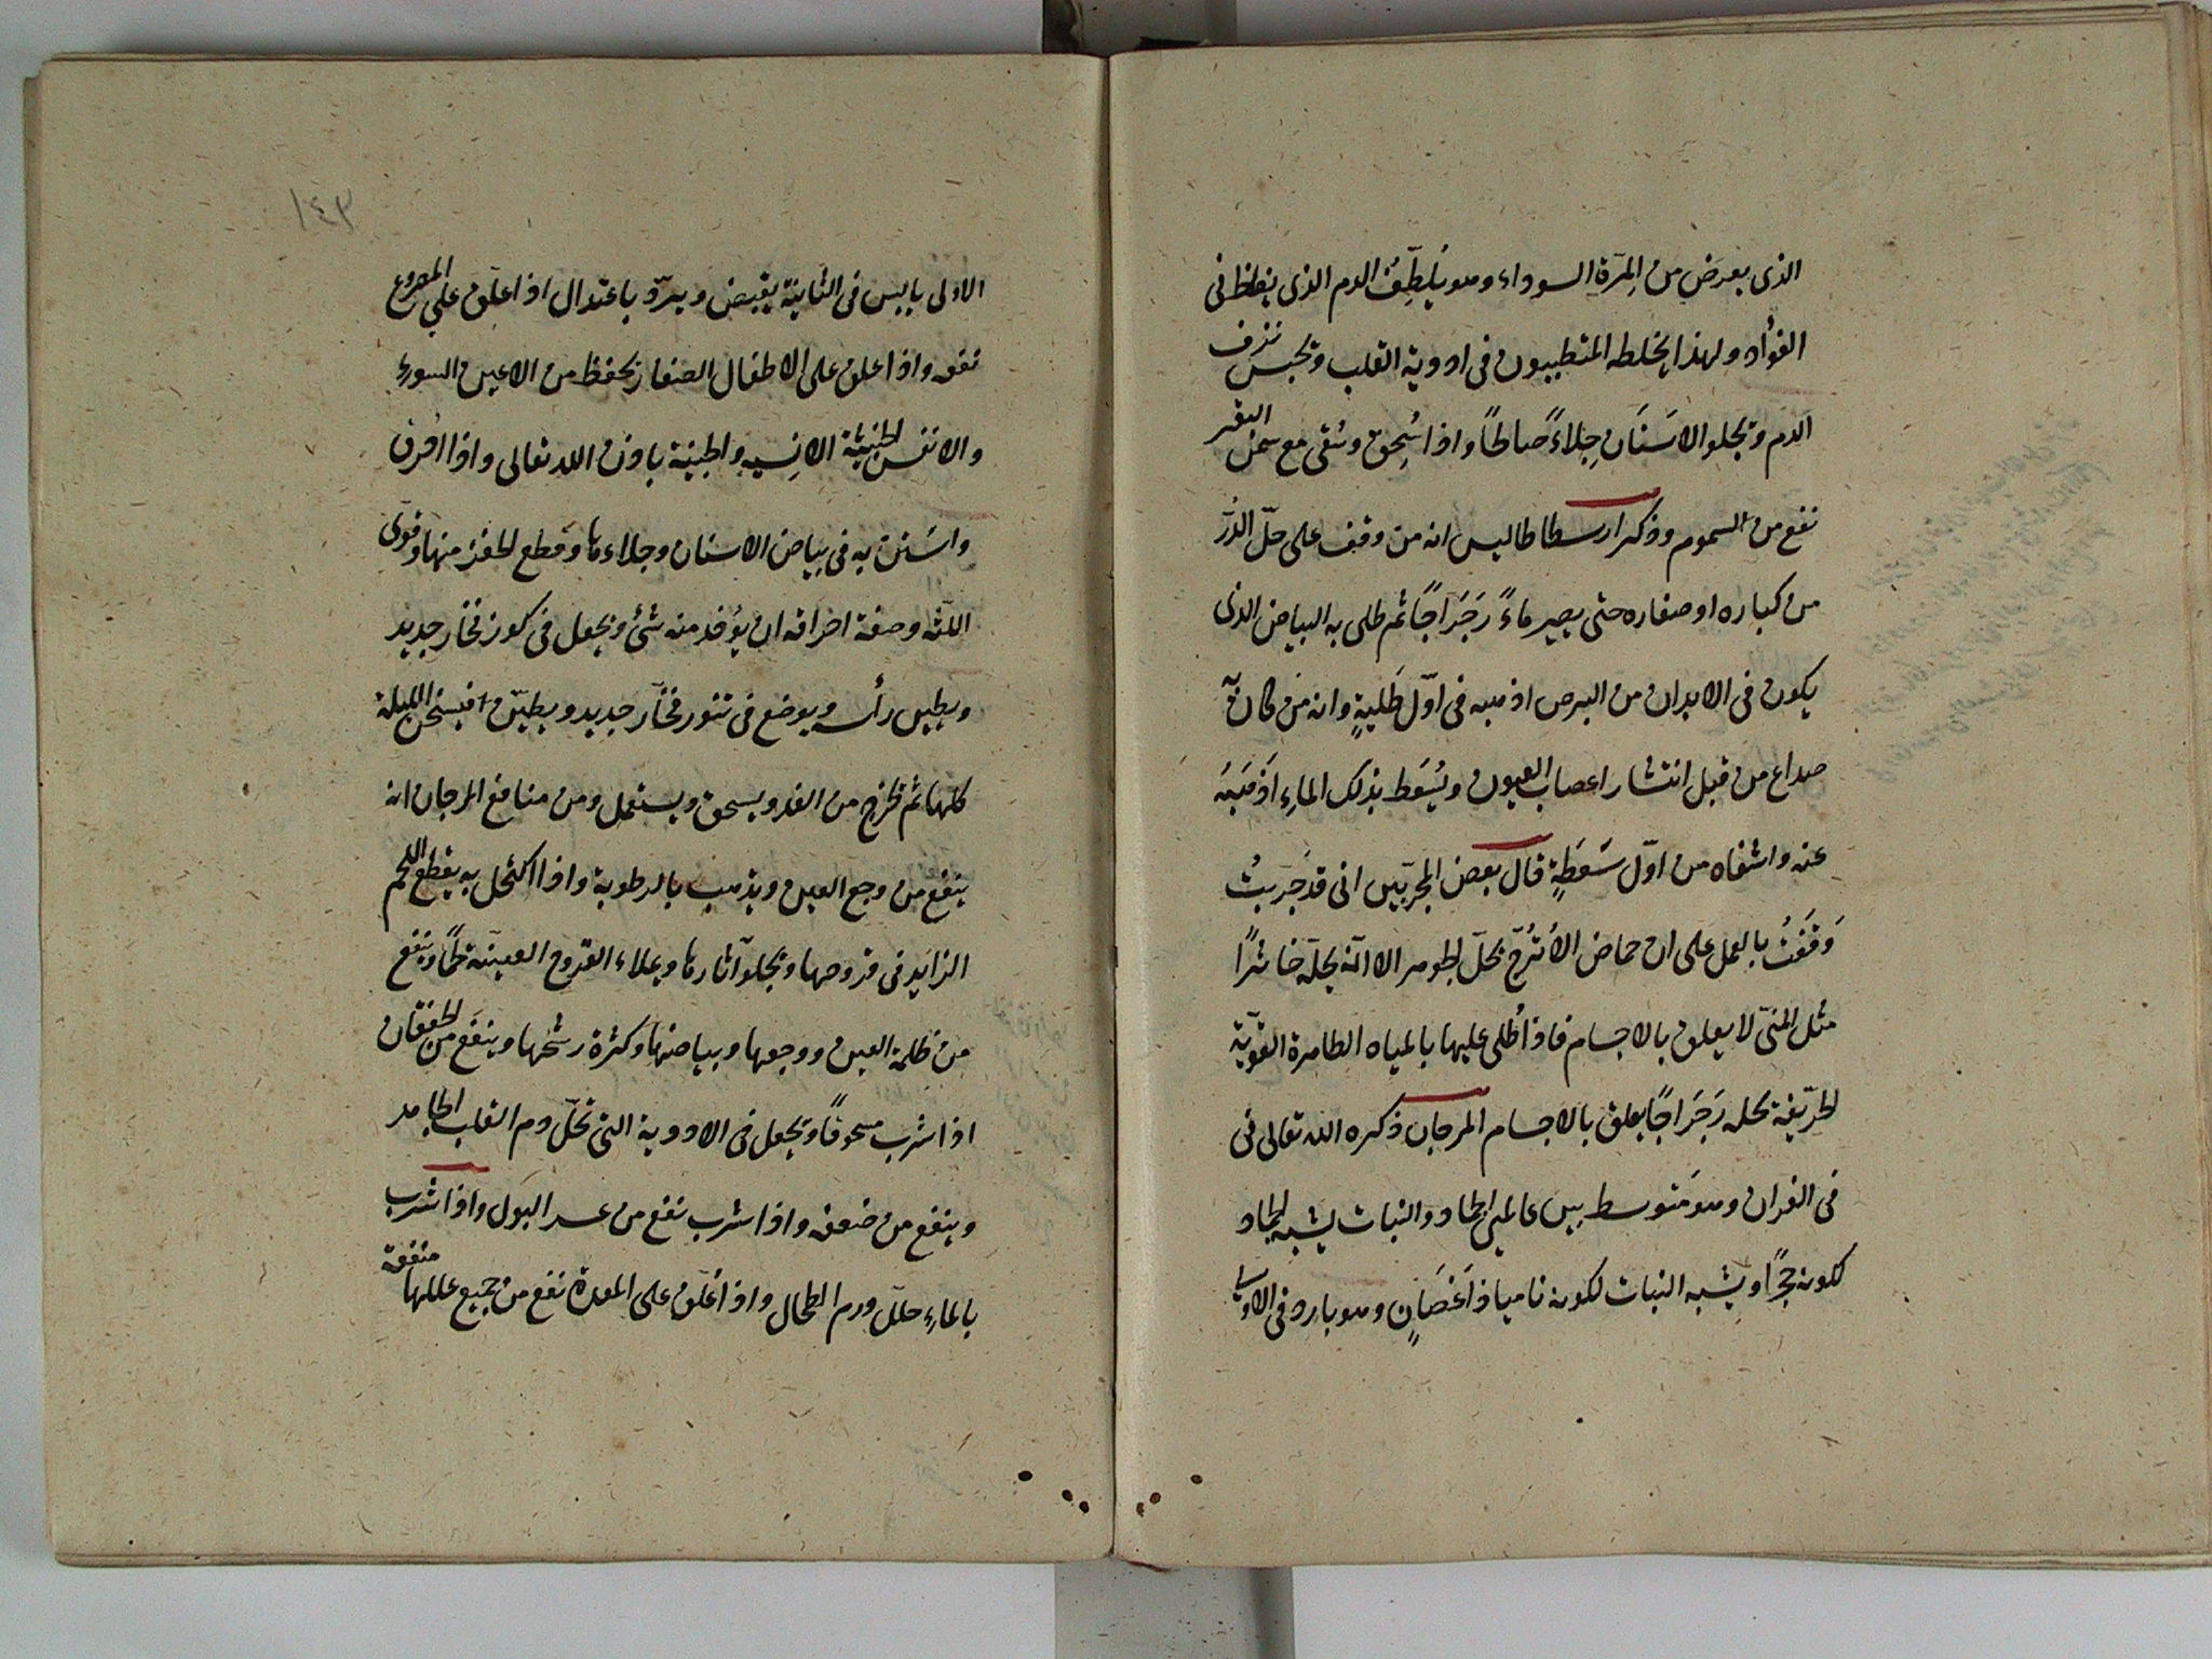 الذى يعرض من المِرّة السوداء وهو يُلطِّف الدم الذى يغلظ فى
الفُؤاد ولهذا يخلطه المتطببون فى ادوية القلب وتحبس نزف
الدم وتجلو الاسنان جِلاءً صالحًا واذا سُحِق وسُقى مع سمن البقر
نفع من السموم وذكر ارسطاطاليس انه من وقف على حلّ الدُرّ
من كباره او صغاره حتى يصير ماءً رَجْرَاجًا ثم طلى به البياض الذى
يكون فى الابدان من البرص اذهبه فى اوّل طَليةٍ وانه من كان به
صداع من قبل انتشار اعصاب العيون ويُسعَط بذلك الماءِ اَذْهَبَه
عنه واشفاه من اوّل سَعطَةٍ قال بعض المجرّبين انى قد جَربتُ
وَقَفتُ بالعمل على ان حماض الاُتْرُجّ يحلّ الجوهر الا انّه يحلّه خاثرًا
مثل المنىّ لا يعلق بالاجسام فاذا طُلى عليها بالمياه الطاهرة القويّة
الحرّيفة تحله رَجْرَاجًا يعلق بالاجسام المرجان ذكره الله تعالى فى
فى القران وهو متوسط بين عالمى الجماد والنبات يشبه الجماد
لكونه حَجَرًا ويشبه النبات لكونه ناميا ذا اَغصَانٍ وهو بارد فى الاولى
١٤٣
الاولى يابس فى الثانية يقبض ويبرّد باعتدال اذا عُلّق على المصروع
نفعه واذا علق على الاطفال الصغار يحفظ من الاعين السوء
والانفس الخبيثة الانسيه والجنية باذن الله تعالى واذا احرق
واستنّ به فى بياض الاسنان وجلاءها وقطع الحفر منها وقوّى
اللّثه وصفة احراقه ان يؤخذ منه شئ ويجعل فى كوز فخار جديد
ويطين رأسه ويوضع فى تنور فخّار جديد ويطيّن الليلة
كلها ثم تخرج من الغد ويسحق ويستعمل ومن منافع المرجان انه
ينفع من وجع العين ويذهب بالرطوبة واذا اكتحل به يقطع اللحم
الزايد فى قروحها ويجلو آثارها ويملاء القروح العميقة لحمًا وينفع
من ظلمة العين ووجعها وبياضها وكثرة رشحها وينفع من الخفقان
اذا شرب مسحوقًا ويجعل فى الادوية التى تحلّ دم القلب الجامد
وينفع من ضعفه واذا شرب نفع من عسر البول واذا شرب
بالماءِ حلّل ورم الطحال واذا عُلّق على المعدة نفع من جميع عللها منفعة